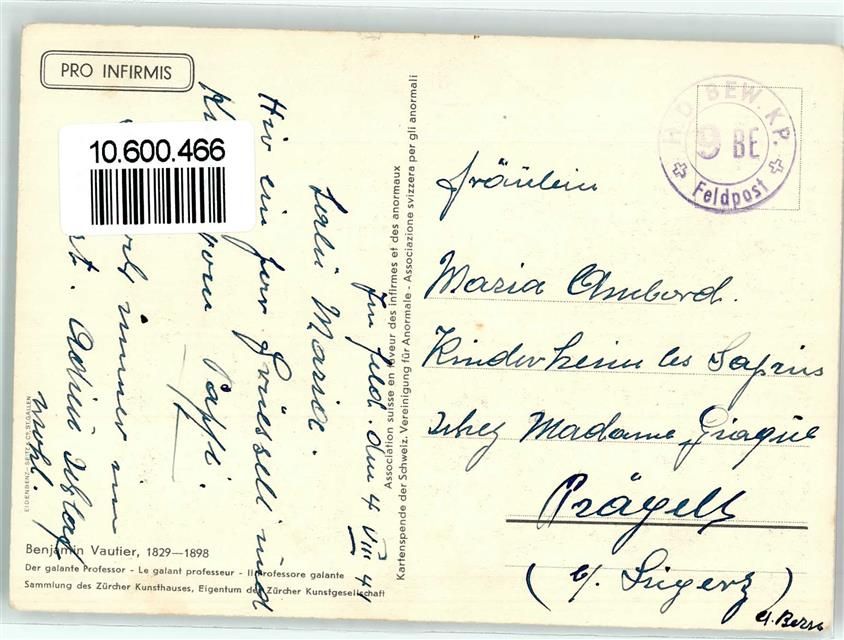 PRO INFIRMIS
10.600.466
Im Feld. den 4 VIII 44
Salü Maria.
Hir ein par Grüessli und
vom Papi.
immer im
Adieu
wohl.
EIDENBENZ-SEITZ & CO. ST.GALLEN
Benjamin Vautier, 1829—1898
Der galante Professor - Le galant professeur - Il professore galante
Sammlung des Zürcher Kunsthauses, Eigentum der Zürcher Kunstgesellschaft
Association suisse en faveur des infirmes et des anormaux
Kartenspende der Schweiz. Vereinigung für Anormale - Associazione svizzera per gli anormali
BEW. KP.
9 BE
Feldpost
Fräulein
Maria Ambord.
Kinderheim les Sapins
chez Madame Giaque
Prägelz
(b/. Ligerz)
Kt. Bern